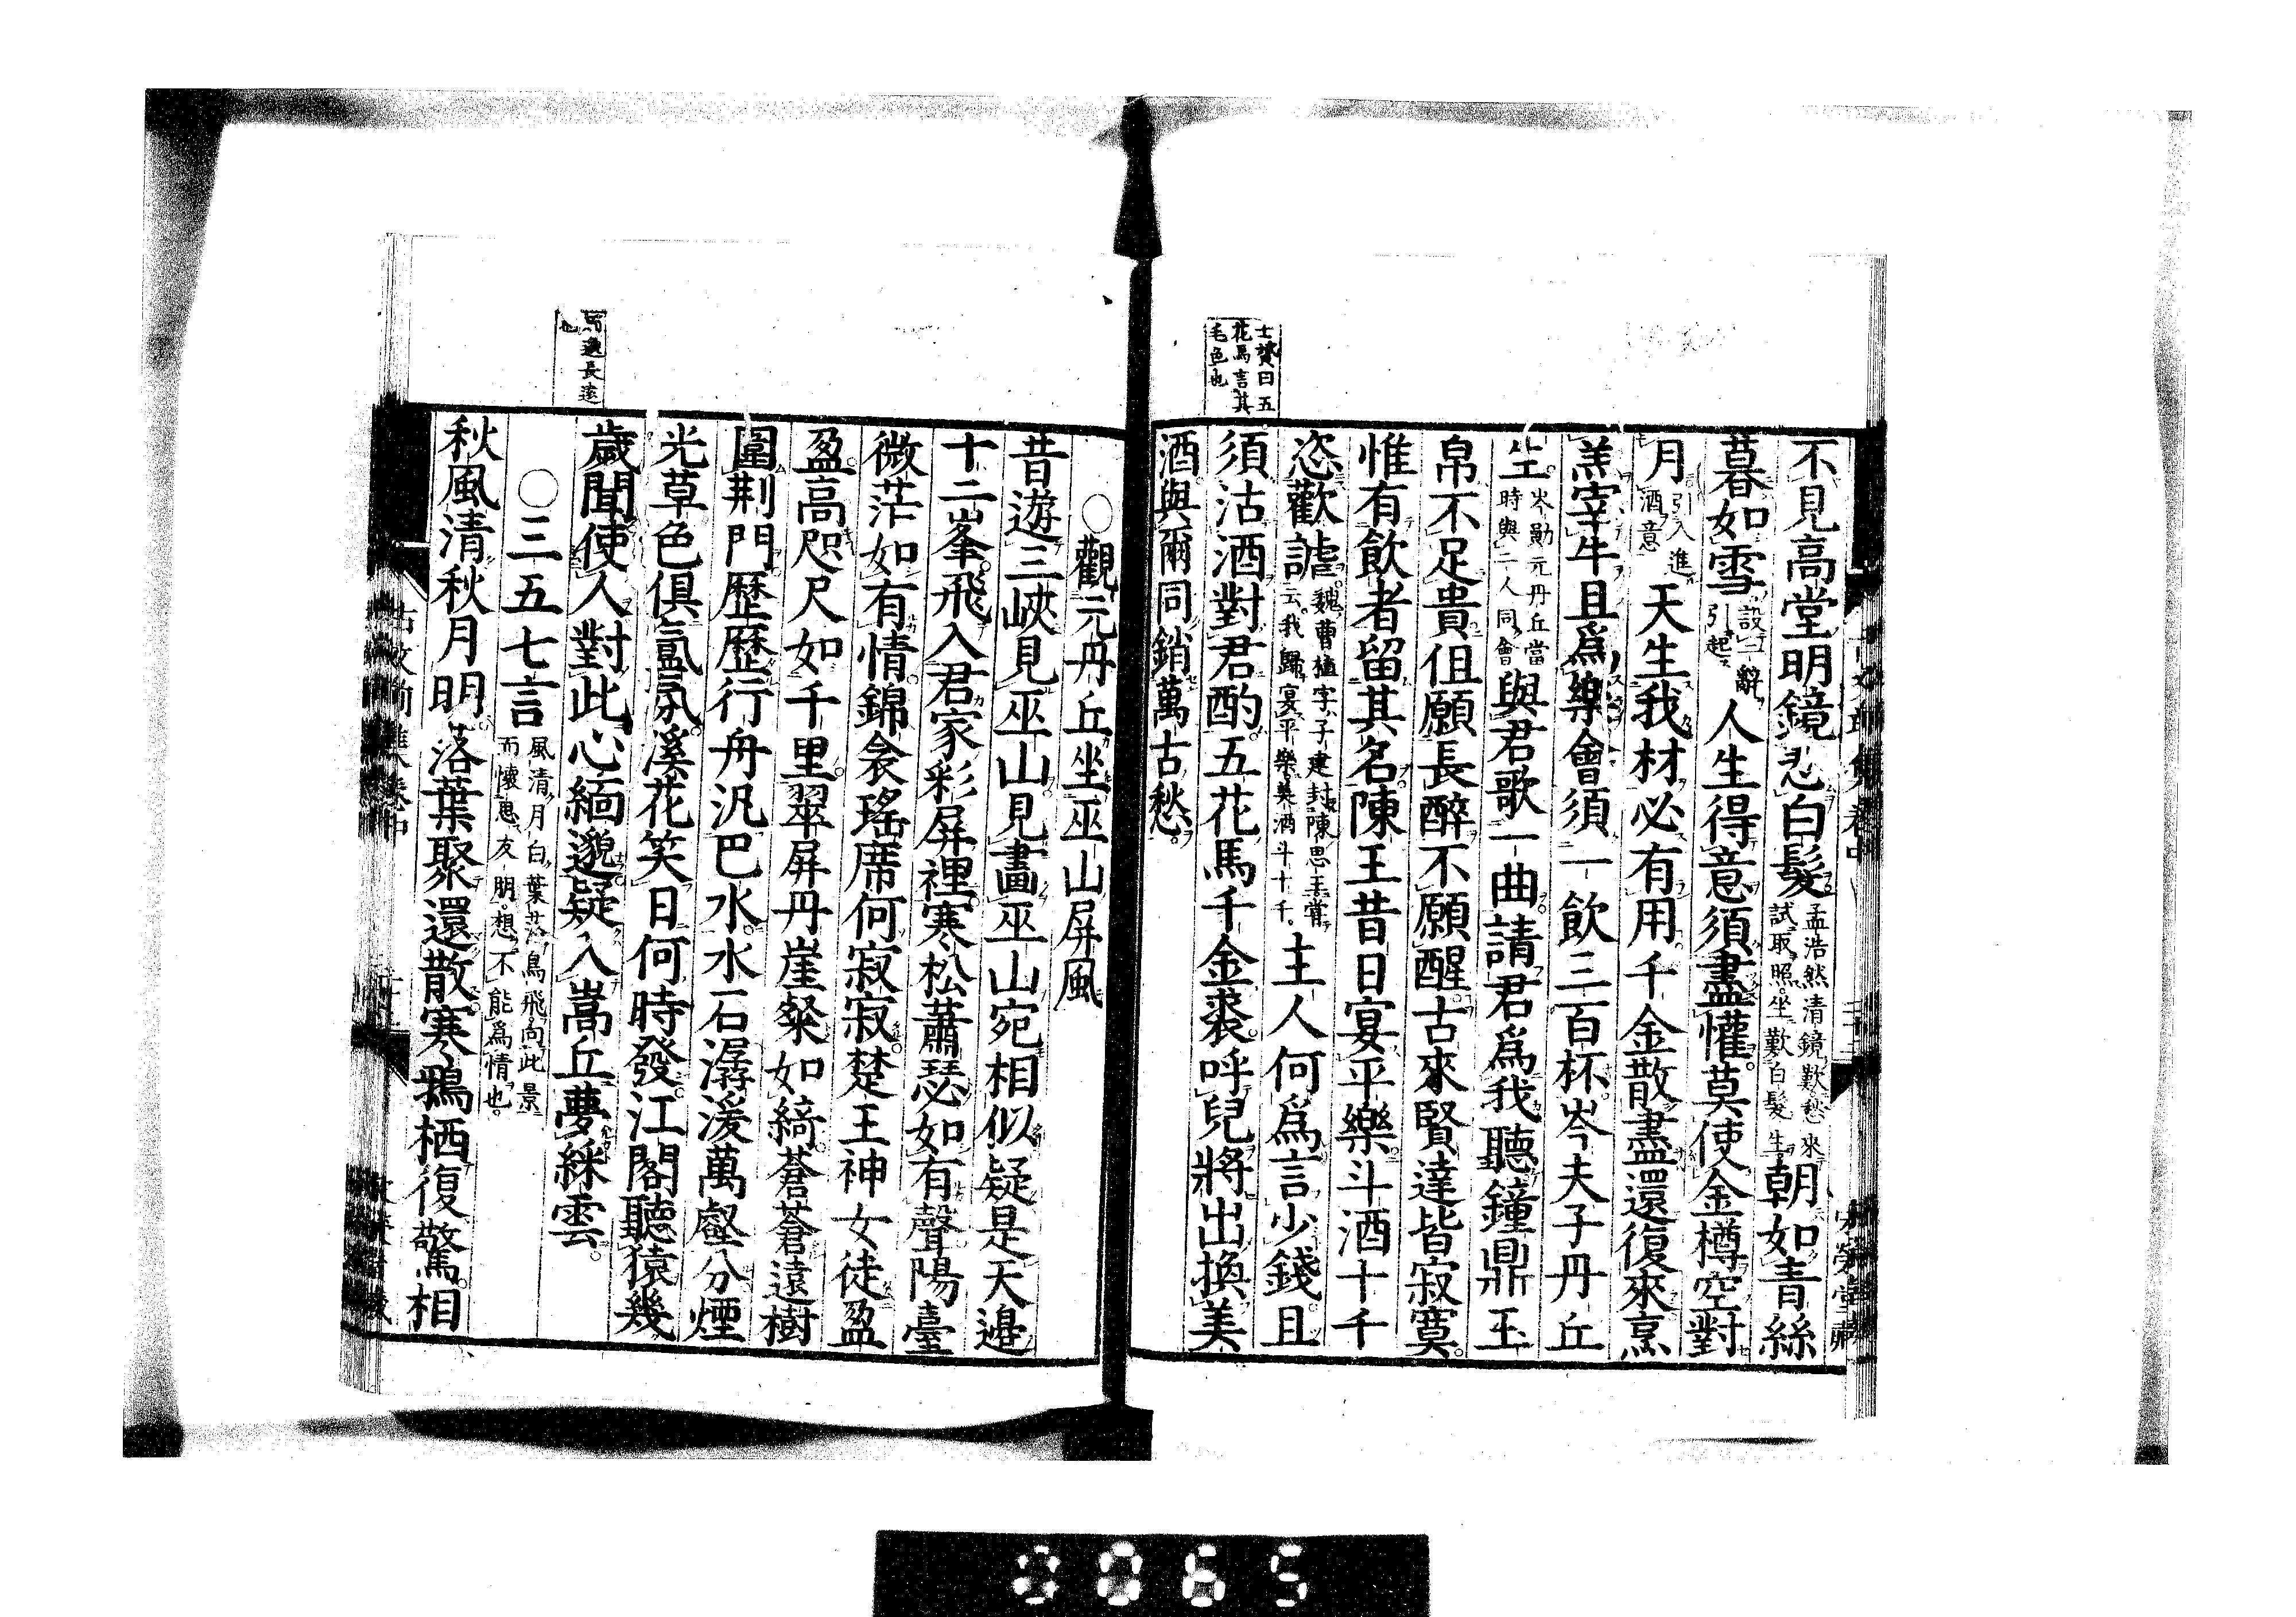 士贇曰五
花馬言其
毛色也
不見高堂明鏡悲白髮孟浩然清鏡歎愁來試取照坐歎白髮生朝如青絲
暮如雪設二辭引起人生得意須盡懽莫使金樽空對
月引入進酒意天生我材必有用千金散盡還復來烹
羔宰牛且爲樂會須一飲三百杯岑夫子丹丘
生岑勛元丹丘當時與二人同會與君歌一曲請君爲我聽鐘鼎玉
帛不足貴但願長醉不願醒古來賢達皆寂寞
惟有飲者留其名陳王昔日宴平樂斗酒十千
恣歡謔魏曹植字子建封陳思王嘗云我歸宴平樂美酒斗十千主人何爲言少錢且
須沽酒對君酌五花馬千金裘呼兒將出換美
酒與爾同銷萬古愁
○觀元丹丘坐巫山屏風
昔遊三峽見巫山見畫巫山宛相似疑是天邊
十二峯飛入君家彩屏裡寒松蕭瑟如有聲陽臺
微茫如有情錦衾瑤席何寂寂楚王神女徒盈
盈高咫尺如千里翠屏丹崖粲如綺蒼蒼遠樹
圍荆門歷歷行舟汎巴水水石潺湲萬壑分煙
光草色俱氳氛溪花笑日何時發江閣聽猿幾
歲聞使人對此心緬邈疑入嵩丘夢綵雲
○三五七言風清月白葉落鳥飛向此景而懷思友朋想不能爲情也
秋風清秋月明落葉聚還散寒鴉栖復驚相
0065